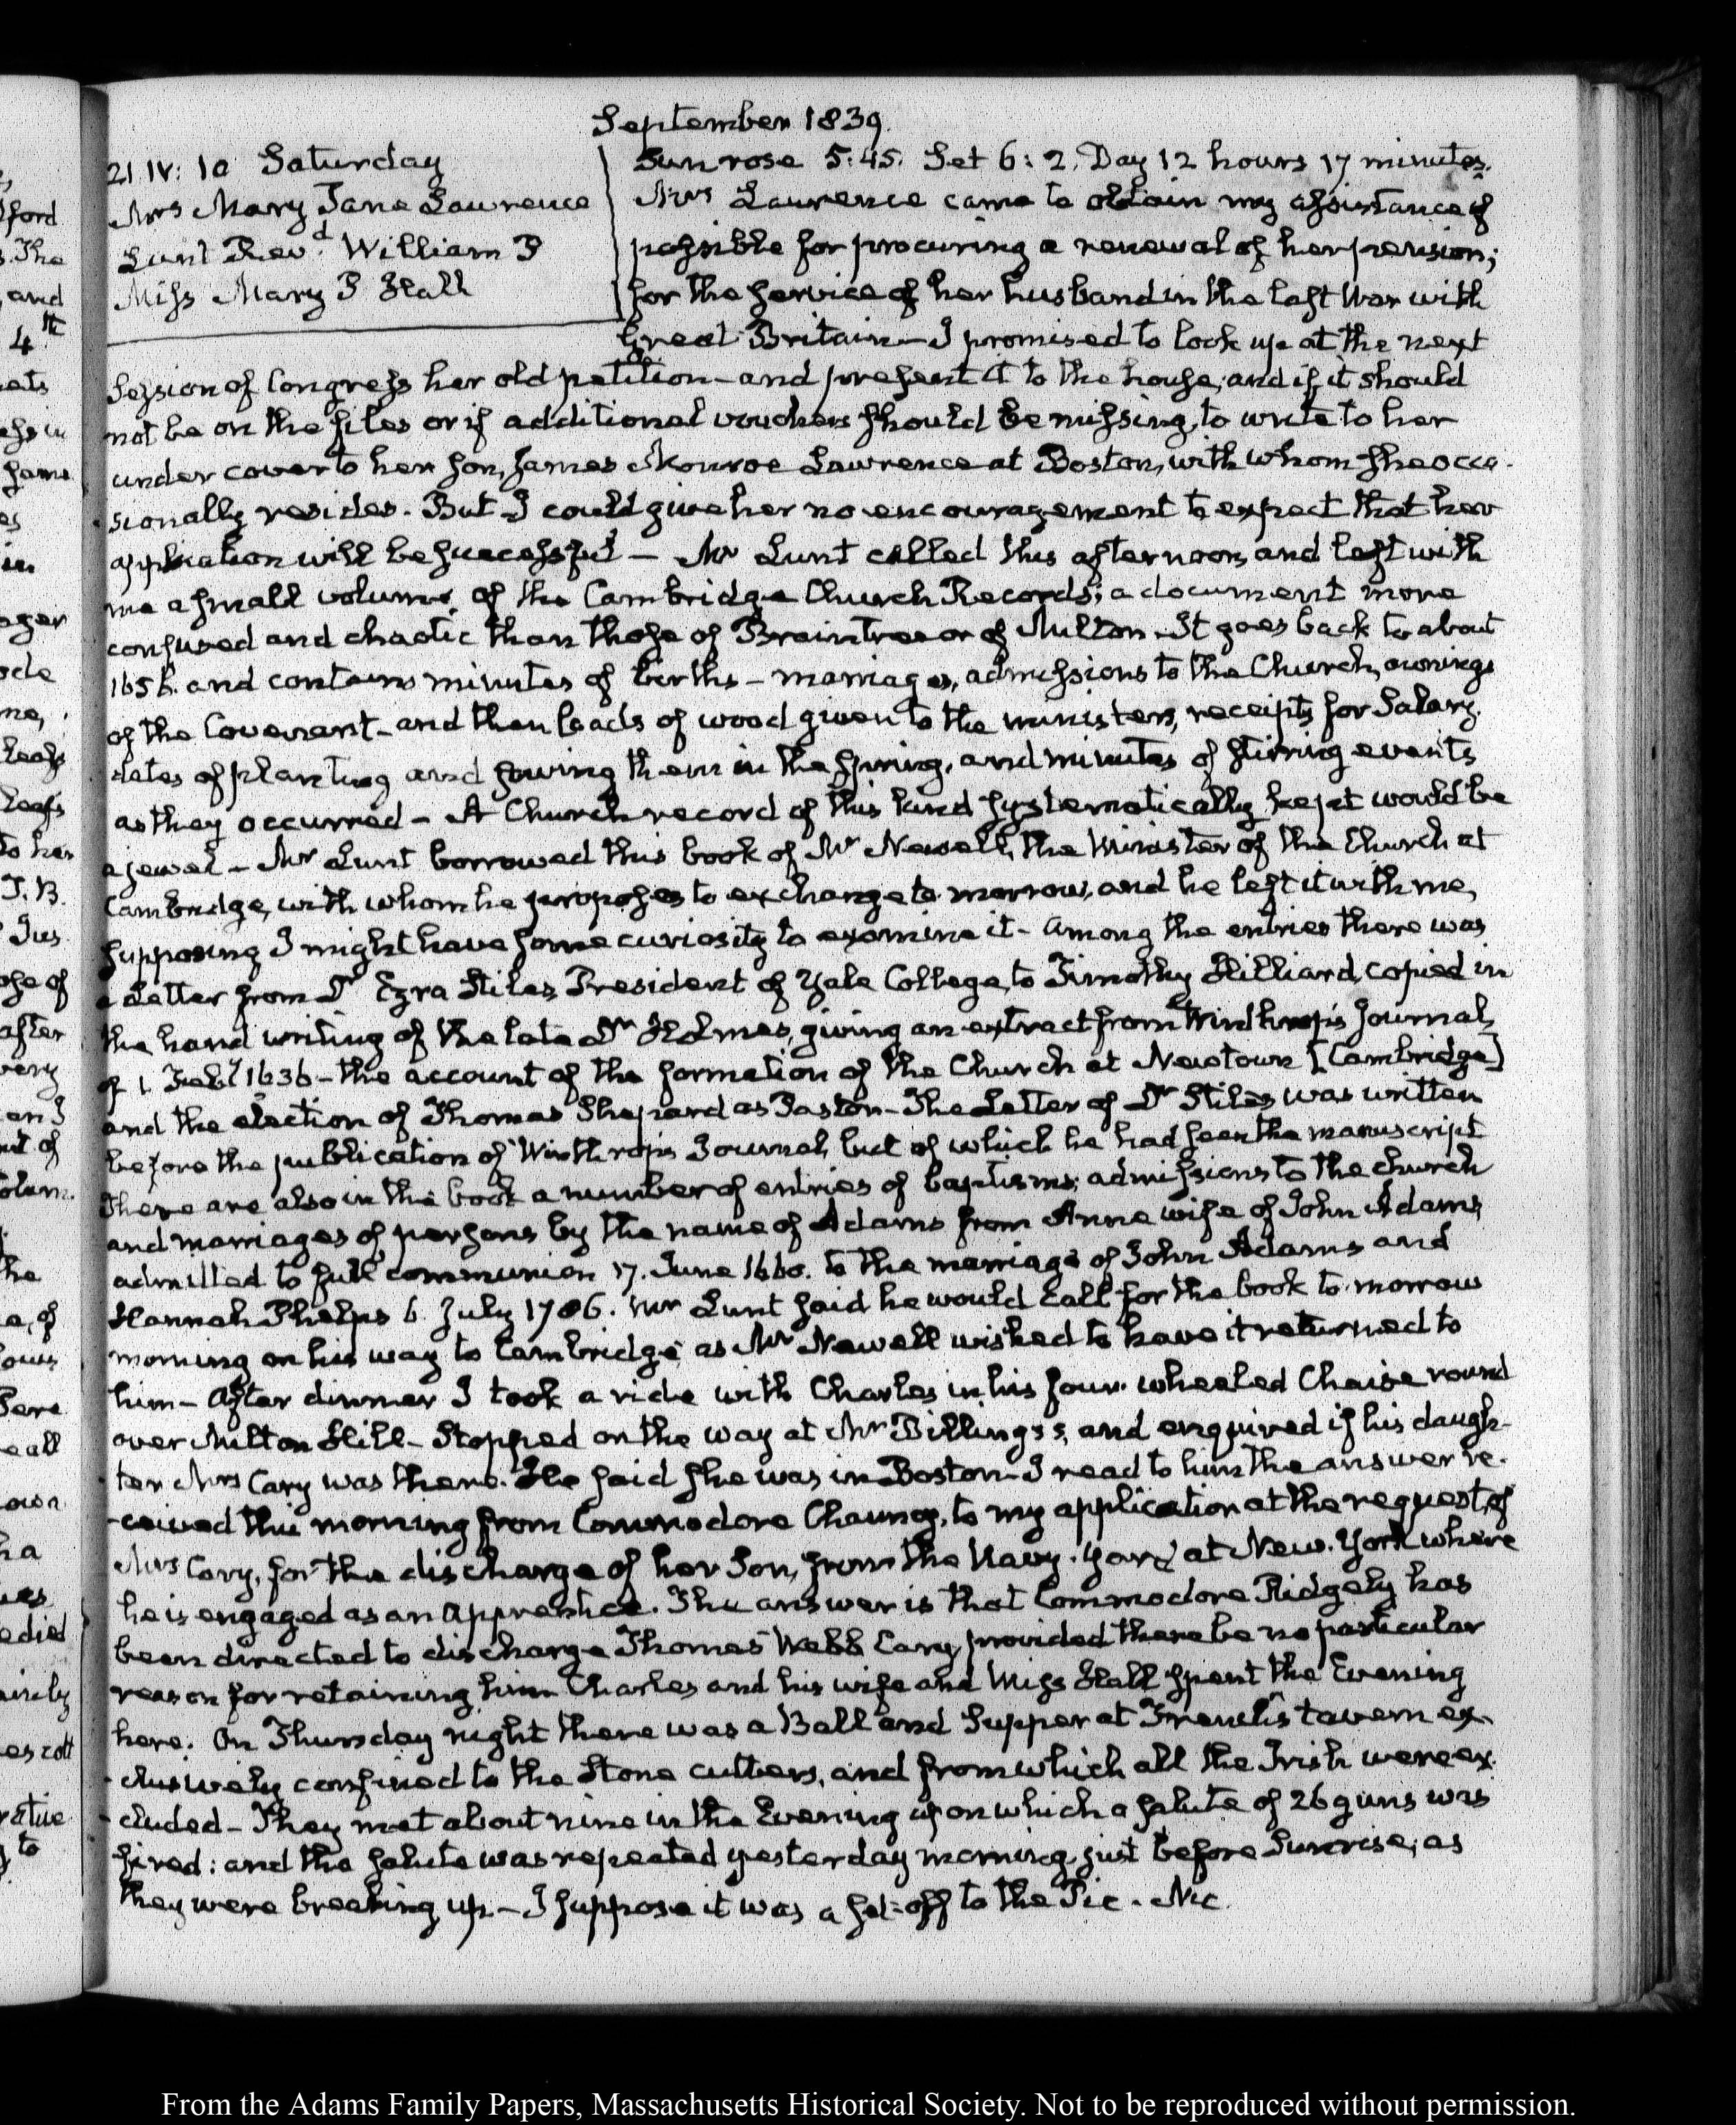 September 1839.
21 IV: 10 Saturday
Mrs Mary Jane Lawrence
Lunt Revd. William P
Miss Mary P Hall
Sun rose 5:45. Set 6:2. Day 12 hours 17 minutes.
Mrs Lawrence came to obtain my assistance if
possible for procuring a renewal of her pension;
for the service of her husband in the last War with
Great Britain — I promised to look up at the next
Session of Congress her old petition — and present it to the house; and if it should
not be on the files or if additional vouchers should be missing, to write to her
under cover to her son, James Monroe Lawrence at Boston, with whom she occa-
sionally resides. But I could give her no encouragement to expect that her
application will be successful — Mr Lunt called this afternoon, and left with
me a small volume of the Cambridge Church Records; a document more
confused and chaotic than those of Braintree or of Milton. It goes back to about
1656. and contains minutes of births — marriages, admissions to the Church, ownings
of the Covenant — and then loads of wood given to the ministers, receipts for Salary.
dates of planting and sowing them in the spring, and minutes of stirring events
as they occurred — A Church record of this kind systematically kept would be
a jewel — Mr Lunt borrowed this book of Mr Newell, the Minister of the Church at
Cambridge, with whom he proposes to exchange to-morrow, and he left it with me,
supposing I might have some curiosity to examine it — Among the entries there was
a Letter from Dr Ezra Stiles, President of Yale College, to Timothy Hilliard, copied in
the hand writing of the late Dr Holmes, giving an extract from Winthrop's Journal,
of 1. Feby 1636 — the account of the formation of the Church at Newtown [Cambridge]
and the election of Thomas Shepard as Pastor — The Letter of Dr Stiles was written
before the publication of Winthrop's Journal, but of which he had seen the manuscript
There are also in this book a number of entries of baptisms; admissions to the church
and marriages of persons by the name of Adams from Anne wife of John Adams,
admitted to full communion 17. June 1660. to the marriage of John Adams and
Hannah Phelps 6. July 1786. Mr Lunt said he would call for the book to-morrow
morning on his way to Cambridge as Mr Newell wished to have it returned to
him — After dinner I took a ride with Charles in his four wheeled Chaise round
over Milton Hill — Stopped on the way at Mr Billings's, and enquired if his daugh-
ter Mrs Cary was there. He said she was in Boston — I read to him the answer re-
-ceived this morning from Commodore Chauncy, to my application at the request of
Mrs Cary, for the discharge of her Son, from the Navy-Yard at New-York where
he is engaged as an apprentice. The answer is that Commodore Ridgely has
been directed to discharge Thomas Webb Cary, provided there be no particular
reason for retaining him Charles and his wife and Miss Hall spent the Evening
here. On Thursday night there was a Ball and Supper at French's tavern ex-
-clusively confined to the Stone cutters, and from which all the Irish were ex-
-cluded — They met about nine in the Evening upon which a salute of 26 guns was
fired: and the salute was repeated yesterday morning, just before Sunrise, as
they were breaking up. — I suppose it was a set-off to the Pic-Nic.
From the Adams Family Papers, Massachusetts Historical Society. Not to be reproduced without permission.